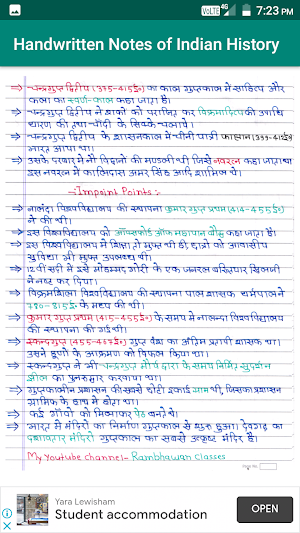 VoLTE 4G 7:23 PM
Handwritten Notes of Indian History
⇒ चन्द्रगुप्त द्वितीय (375-415ई०) का काल गुप्तकाल में साहित्य और
कला का स्वर्ण-काल कहा जाता है।
⇒ चन्द्रगुप्त द्वितीय ने शकों को पराजित कर विक्रमादित्य की उपाधि
धारण की तथा चाँदी के सिक्के चलाये।
⇒ चन्द्रगुप्त द्वितीय के शासनकाल में चीनी यात्री फाह्यान (399-412ई०)
भारत आया था।
⇒ उसके दरबार में नौ विद्वानों की मण्डली थी जिसे नवरत्न कहा जाता था
इस नवरत्न में कालिदास अमर सिंह आदि शामिल थे।
Impoint Points:-
⇒ नालंदा विश्वविद्यालय की स्थापना कुमार गुप्त प्रथम (414-455ई०)
ने की थी।
⇒ इस विश्वविद्यालय को ऑक्सफोर्ड ऑफ महायान बौद्ध कहा जाता है।
⇒ इस विश्वविद्यालय में शिक्षा तो मुफ्त थी ही, छात्रों को आवासीय
सुविधा भी मुफ्त उपलब्ध थी।
⇒ 12वीं सदी में इसे मोहम्मद गोरी के एक जनरल बख्तियार खिलजी
ने नष्ट कर दिया।
⇒ विक्रमशिला विश्वविद्यालय की स्थापना पाल शासक धर्मपाल ने
780-815ई० के मध्य की थी।
⇒ कुमार गुप्त प्रथम (415-455ई०) के समय में नालन्दा विश्वविद्यालय
की स्थापना की गई थी।
⇒ स्कन्दगुप्त (455-467ई०) गुप्त वंश का अन्तिम प्रतापी शासक था।
उसने हूणों के आक्रमण को विफल किया था।
⇒ स्कन्दगुप्त ने भी चन्द्रगुप्त मौर्य द्वारा के समय निर्मित सुदर्शन
झील का पुनरुद्धार करवाया था।
⇒ गुप्तकालीन प्रशासन की सबसे छोटी इकाई ग्राम थी, जिसका प्रशासन
ग्रामिक के हाथ में होता था।
⇒ कई गाँवों को मिलाकर पेठ बनते थे।
⇒ भारत में मंदिरों का निर्माण गुप्तकाल से शुरू हुआ। देवगढ़ का
दशावतार मंदिर गुप्तकाल का सबसे उत्कृष्ट मंदिर है।
My Youtube channel- Rambhawan Classes
Yara Lewisham
Student accommodation
OPEN